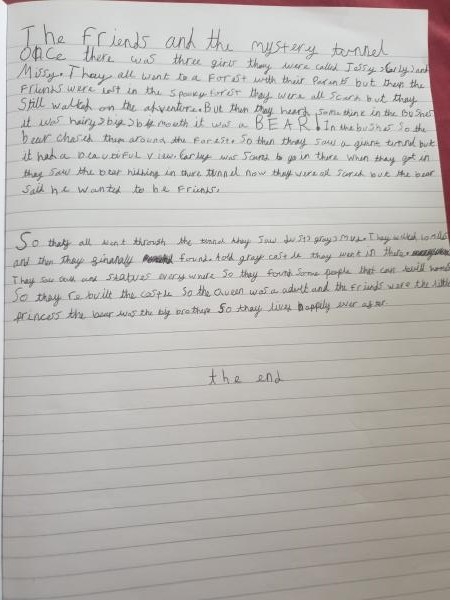 The Friends and the mystery tunnel
Once there was three girls they were called Jessy, Carly, and
Missy. They all went to a Forest with their Parents but then the
Friends were lost in the spooky forest they were all scard but they
Still walked on the adventure. But then they heard something in the bushes
it was hairy, big, big mouth it was a BEAR! In the bushes So the
bear chased them around the Forest. So then they saw a giant tunnel but
it had a beautiful view. Carly was scard to go in there when they got in
they saw the bear hidding in there tunnel now they were all scared but the bear
said he wanted to be friends.
So they all went through the tunnel they saw dust, grey, mud. They walked
and then they finally found a old grey castle they went in there
They saw and statues everywhere So they found some people that can build
So they rebuilt the castle So the Queen was a adult and the Friends were the little
princess the bear was the big brother So they lived happily ever after
the end